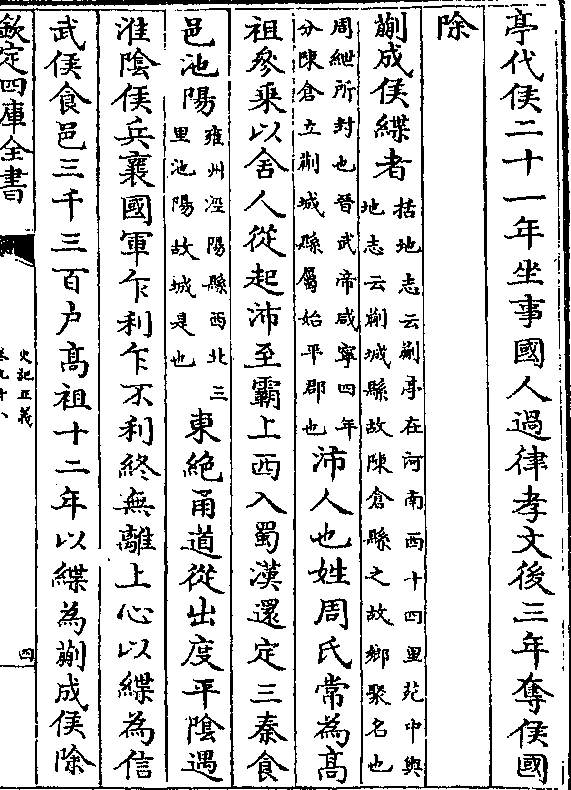 亭代侯二十一年坐事國人過律孝文後三年奪侯國
除
蒯成侯緤者括地志云蒯亭在河南西十四里苑中輿
地志云蒯城縣故陳倉縣之故鄉聚名也
周緤所封也晉武帝咸寧四年
分陳倉立蒯城縣屬始平郡也沛人也姓周氏常為高
祖參乗以舍人從起沛至霸上西入蜀漢還定三秦食
邑池陽雍州涇陽縣西北三
里池陽故城是也東絶甬道從出度平隂遇
淮隂侯兵襄國軍乍利乍不利終無離上心以緤為信
武侯食邑三千三百户髙祖十二年以緤為蒯成侯除
欽定四庫全書
史記正義
卷九十八
四